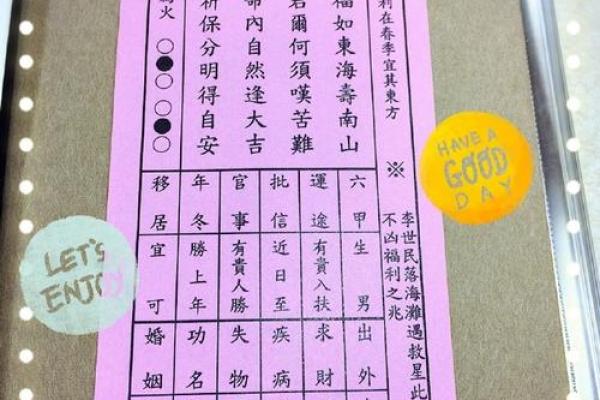 利在春季宜其東方
※
李世民落海灘遇救星此
不凶福利之兆
福如東海壽南山
君爾何須嘆苦難
命內自然逢大吉
祈保分明得自安
火 ○●○ ○●○
六甲
運途
批信
官事
年冬
移居
生男
有貴人扶
近日至
有貴人勝
勝上年
宜可
出外
求財
疾病
失物
功名
婚姻
HAVE A
GOOD
DAY
LET'S
ENJOY